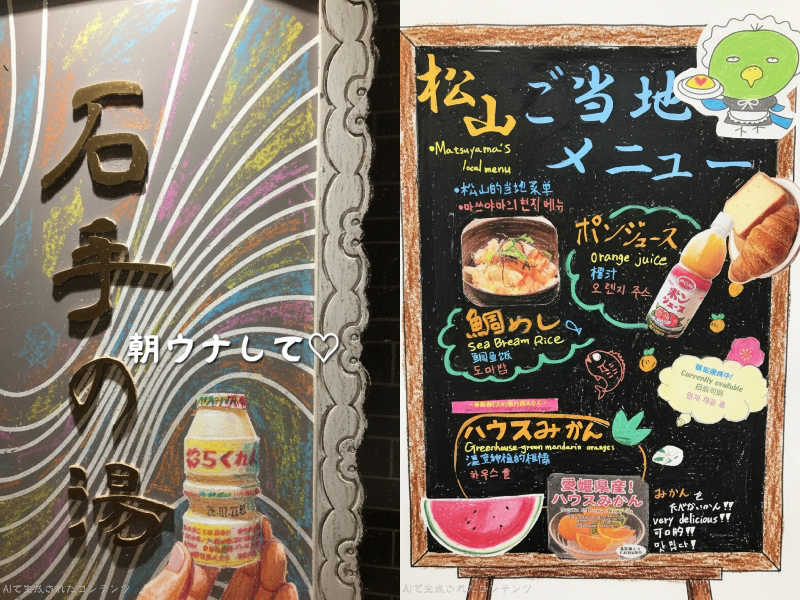 石手の湯
朝ウナして♡
らくれん
AIで生成されたコンテンツ
松山ご当地
メニュー
•Matsuyama's
local menu
•松山的当地菜单
•마쓰야마의 현지 메뉴
ポンジュース
orange juice
橙汁
오렌지 주스
ポン
ジュース
鯛めし
Sea Bream Rice
鯛魚飯
도미밥
Currently available
ハウスみかん
Greenhouse-grown mandarin oranges
温室种植的柑橘
하우스 귤
愛媛県産!
ハウスみかん
みかんを
たべないかん!!
very delicious!!
可口的!!
맛있다!
AIで生成されたコンテンツ